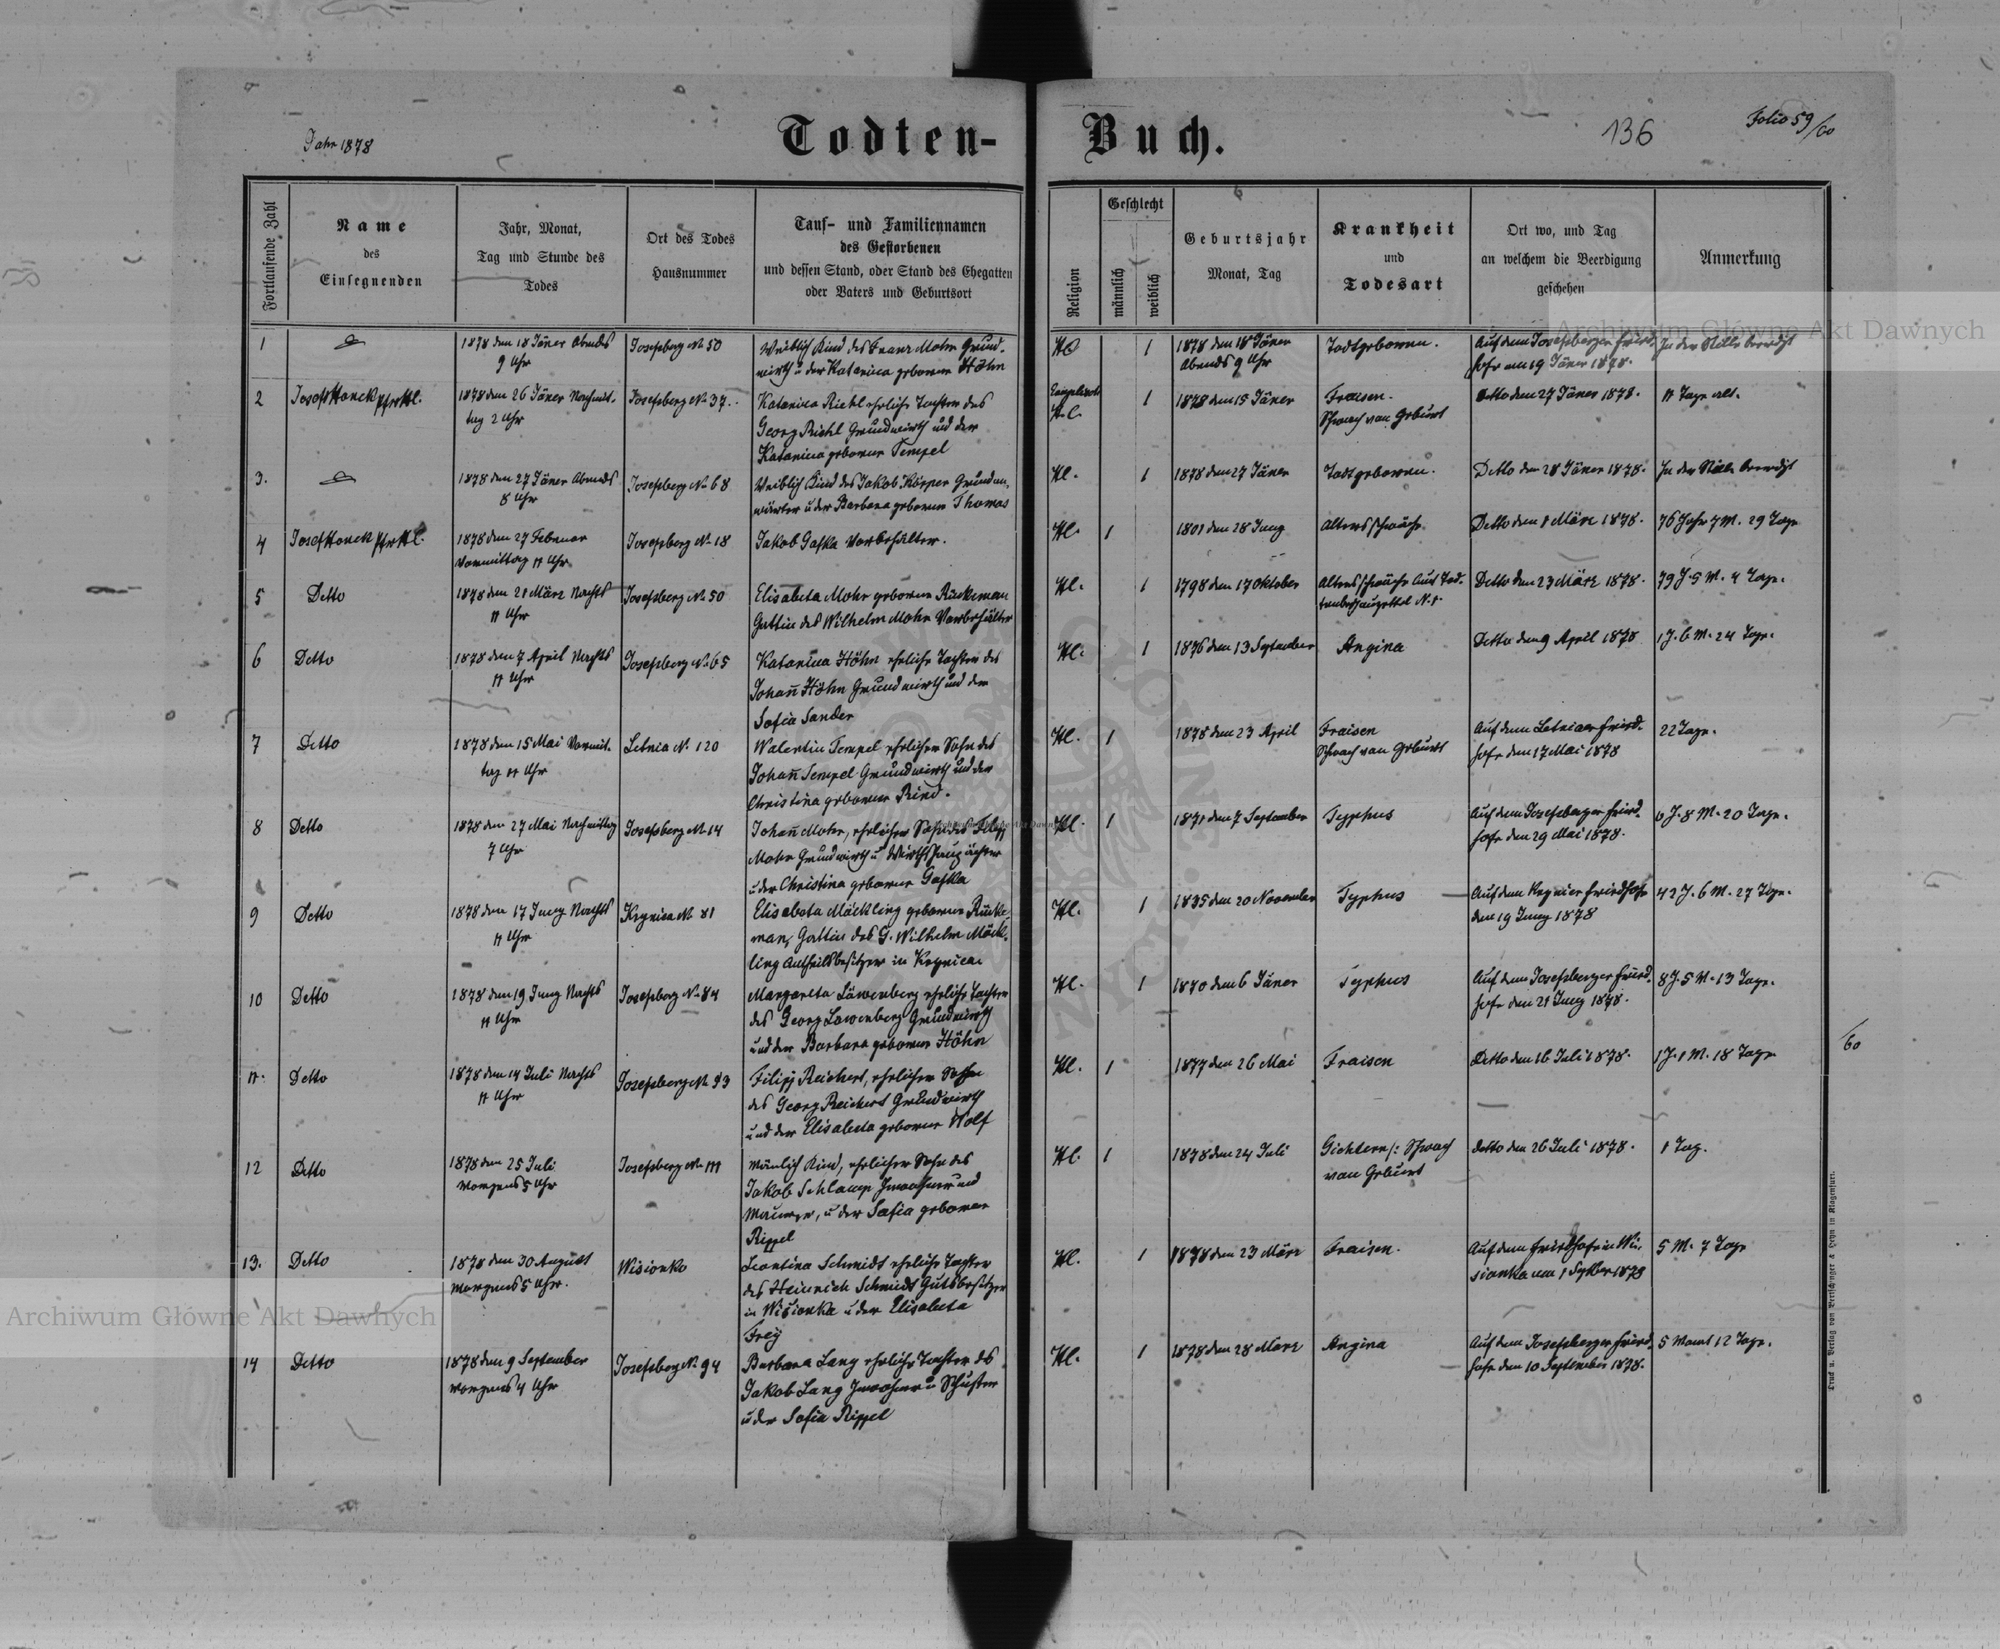 Jahr 1878
Todten-Buch.
136
Folio 59/60
Fortlaufende Zahl
Name
des
Einsegnenden
Jahr, Monat,
Tag und Stunde des
Todes
Ort des Todes
Hausnummer
Tauf- und Familiennamen
des Gestorbenen
und dessen Stand, oder Stand des Ehegatten
oder Vaters und Geburtsort
Religion
Geschlecht
männlich
weiblich
Geburtsjahr
Monat, Tag
Krankheit
und
Todesart
Ort wo, und Tag
an welchem die Beerdigung
geschehen
Anmerkung
1
1878 den 18 Jäner Abends
9 Uhr
Josefsberg No 50
Weiblich Kind des Franz Mohr Grund-
wirth u der Katarina geborene Höhn
1
1878 den 18 Jäner
Abends 9 Uhr
Todtgeboren.
Auf dem Josefsberger Fried-
hofe am 19 Jäner 1878.
In der Stille beerdigt
2
Josef Honck
1878 den 26 Jäner Nachmit-
tag 2 Uhr
Josefsberg No 37.
Katarina Riehl ehrliche Tochter des
Georg Riehl Grundwirth und der
Katarina geborene Tempel
1
1878 den 15 Jäner
Fraisen.
Schwach von Geburt
Detto den 27 Jäner 1878.
11 Tage alt.
3.
1878 den 27 Jäner Abends
8 Uhr
Josefsberg No 68
Weiblich Kind des Jakob Körper Grundan-
wärter u der Barbara geborene Thomas
1
1878 den 27 Jäner
Todtgeboren.
Detto den 28 Jäner 1878.
In der Stille beerdigt
4
Josef Honck
1878 den 27 Februar
Vormittag 11 Uhr
Josefsberg No 18
Jakob Gafka Vorbehälter.
1
1801 den 28 Juny
Altersschwäche
Detto den 1 März 1878.
76 Jahr 7 M. 29 Tage
5
Detto
1878 den 21 März Nachts
11 Uhr
Josefsberg No 50
Elisabeta Mohr geborene Rückeman
Gattin des Wilhelm Mohr Vorbehälter
1
1798 den 17 Oktober
Altersschwäche Aus Tod-
tenbeschauzettel N. 1
Detto den 23 März 1878.
79 J. 5 M. 4 Tage.
6
Detto
1878 den 7 April Nachts
11 Uhr
Josefsberg No 65
Katarina Höhn ehrliche Tochter des
Johañ Höhn Grundwirth und der
Sofia Sander
1
1876 den 13 September
Angina
Detto den 9 April 1878
1 J. 6 M. 24 Tage.
7
Detto
1878 den 15 Mai Vormit-
tag 11 Uhr
Letnia N. 120
Walentin Tempel ehrlicher Sohn des
Johañ Tempel Grundwirth und der
Christina geborene Rind.
1
1878 den 23 April
Fraisen
Schwach von Geburt
Auf dem Letniaer Fried-
hofe den 17 Mai 1878
22 Tage.
8
Detto
1878 den 27 Mai Nachmittag
7 Uhr
Josefsberg No 14
Johañ Mohr, ehrlicher Sohn des Filipp
Mohr Grundwirth u Wirthshauspächter
u der Christina geborene Gafka
1
1871 den 7 September
Typhus
Auf dem Josefsberger Fried-
hofe den 29 Mai 1878.
6 J. 8 M. 20 Tage.
9
Detto
1878 den 17 Juny Nachts
11 Uhr
Krynica No 81
Elisabeta Mäckling geborene Rücke-
man, Gattin des G. Wilhelm Mäck-
ling Antheilsbesitzer in Krynica
1
1835 den 20 November
Typhus
Auf dem Krynicer Friedhofe
den 19 Juny 1878
42 J. 6 M. 27 Tage.
10
Detto
1878 den 19 Juny Nachts
11 Uhr
Josefsberg No 84
Margareta Läwenberg ehrliche Tochter
des Georg Lawenberg Grundwirth
und der Barbara geborene Höhn
1
1870 den 6 Jäner
Typhus
Auf dem Josefsberger Fried-
hofe den 21 Juny 1878.
8 J. 5 M. 13 Tage.
60
11.
Detto
1878 den 14 Juli Nachts
11 Uhr
Filipp Reichert, ehrlicher Sohn
des Georg Reichert Grundwirth
und der Elisabeta geborene Wolf
1
1877 den 26 Mai
Fraisen
Detto den 16 Juli 1878.
1 J. 1 M. 18 Tage
12
Detto
1878 den 25 Juli
Morgens 5 Uhr
Josefsberg No 111
Mänlich Kind, ehrlicher Sohn des
Jakob Schlamp Inwohner und
Maurer, u der Sofia geborene
Rippel
1
1878 den 24 Juli
Gichtern /: Schwach
von Geburt
Detto den 26 Juli 1878.
1 Tag.
13.
Detto
1878 den 30 August
Morgens 5 Uhr.
Wisionka
Leontina Schmidt ehrliche Tochter
des Heinrich Schmidt Gutsbesitzer
in Wisionka u der Elisabeta
Frey
1
1878 den 23 März
Fraisen.
Auf dem Friedhofe in Wi-
sionka am 1 Septber 1878
5 M. 7 Tage
14
Detto
1878 den 9 September
Morgens 4 Uhr
Josefsberg No 94
Barbara Lang ehrliche Tochter des
Jakob Lang Inwohner u Schuster
u der Sofia Rippel
1
1878 den 28 März
Angina
Auf dem Josefsberger Fried-
hofe den 10 September 1878.
5 Monat 12 Tage.
Druck u. Verlag von Bertschinger & Heyn in Klagenfurt.
Archiwum Główne Akt Dawnych
Archiwum Główne Akt Dawnych